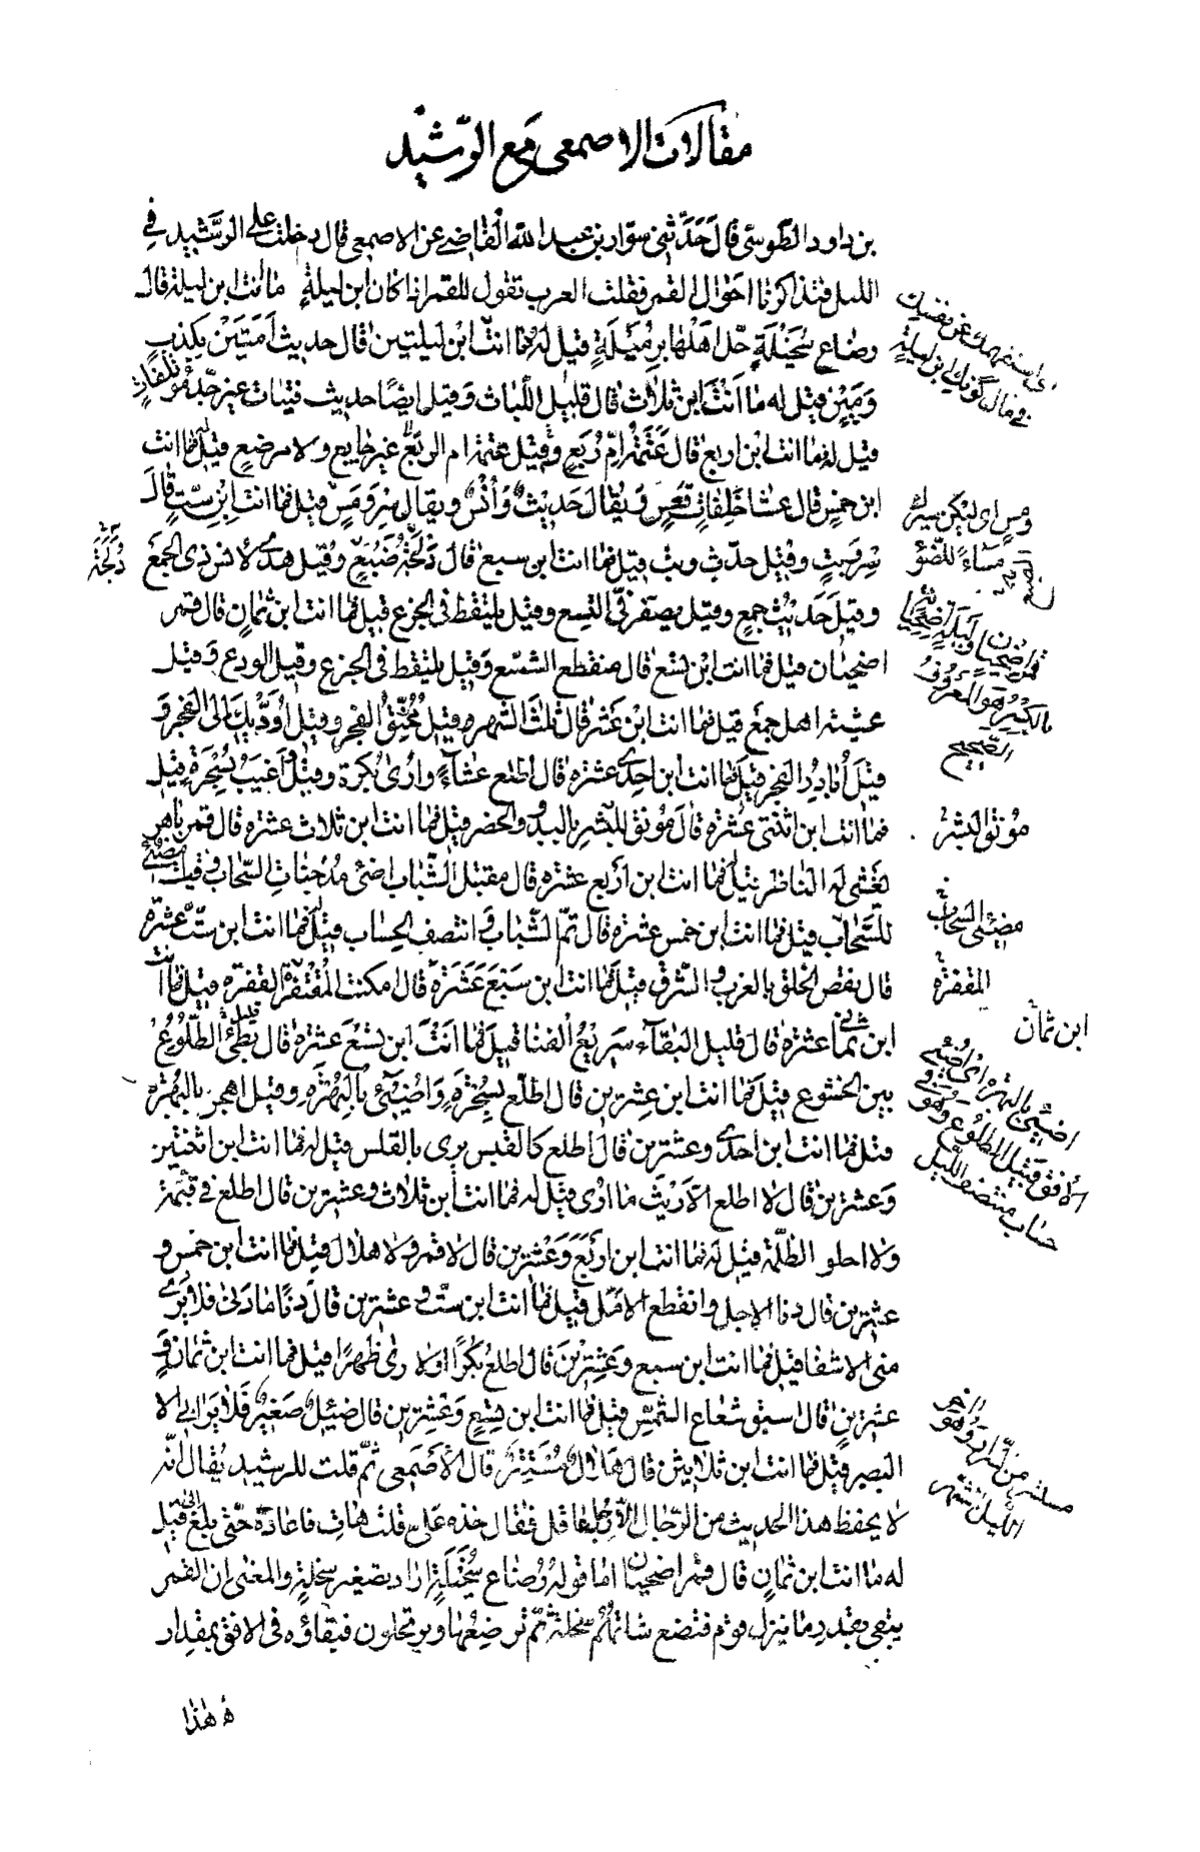 مقالات الاصمعى مع الرّشيد
بن داود الطّوسىّ قال حَدّثنى سوّار بن عبد الله القاضى عن الاصمعى قال دخلت على الرّشيد فى
الليل فتذاكرنا احوال القمر فقلت العرب تقول للقمر اذا كان ابن ليلةٍ ما انت ابن ليلة قال
رضاع سُخَيْلَةٍ حّل اهلها بِرُمَيْلَةٍ قيل له فما انت ابْن ليلتين قال حديث اَمَتَيْن بكذبٍ
وَمَيْن قيل له ما اَنْتَ ابن ثلاث قال قليل اللّباث وَقيل ايضًا حديث فتيات غير جّد مُؤتلفاتٍ
قيل له فما انت ابن اربع قال عَتَمَة امّ رُبَعٍ وقيل عتمة ام الربع غير جايع ولا مرضعٍ قيل له فما انت
ابن خمسٍ قال عشا خَلِفاتٍ قُعسٍ وَيُقال حَديثٌ وَاُنْسٌ ويقال سِرْ وَمَسِّ قيل فما انت ابن ستّ قال
سِرْ وَبِتْ وقيل حدّث وبت قيل فما انت ابن سبع قال دُلجَة ضَبُعٍ وقيل هدى لانس ذى الجمع
دُلجَةُ
وقيلَ حَديْث جمعٍ وقيل يصفر فى التسع وقيل يلتقط فى الجزع قيل فما انت ابن ثمانٍ قال قمر
اضحيان قيل فما انت ابْن تسْع قال منقطع الشسْع وَقيل يلتقط فى الجزع وقيل الودع وَقيل
عشية اهل جمع قيل فما انت ابْن عَشر قال ثلث الشهر وقيل مُخنِّقُ الفجر وقيل اُؤدّيك الى الفجر وَ
قيلَ اُبادِرُ الفجر قيل فما انت ابن احِدى عشرة قال اطلع عشاءً وارُى بُكرة وقيل اغيبُ بسُحْرَة قيل
فما انت ابن اثنتى عَشْرة قال مُونق للبَشر بالبدو والحضر قيل فما انت ابن ثلاث عشرة قال قمر باهر
يَعْشى له الناظر قيل فما انت ابن اَربع عشرة قال مقتبل الشّباب اضئ مُدْجناتِ السّحاب وقيل مضئ
للسَّحاب قيل فما انت ابن خمس عشرة قال تمّ الشّباب وَ انتصف الحِساب قيل فما انت ابن ستّ عشْرة
قال نقص الخلق بالغرب والشرق قيل فما انت ابن سَبْعَ عَشَرَةَ قال امكنت المُقْتَفرة القفرة قيل فما انت
ابن ثمانى عشرة قال قليل البَقآء سَريْعُ الفنا قيل فما انْتَ ابن تِسْعَ عَشْرة قال بَطئُ الطّلُوُعْ
بين الخشوع قيل فما انت ابن عِشْرين قال اطلع بسُحْرَةٍ وَاضيئُ بالبُهرَةِ وقيل اهجر بالبُهْرَة
قيل فما انت ابن احدى وعشرين قال اطلع كالقبس يرى بالغلس قيل له فما انت ابن اثنتين
وَعشرين قال لا اطلع الّا رَيْثَ ما ارُى قيل له فما انت ابن ثلاث وعشرين قال اطلع فى قتمة
ولا اجلو الظّلمة قيل له فما انت ابن اَرْبَعَ وَعشْرين قال لا قمر ولا هلال قيل فما انت ابن خمس و
عشرين قال دنا الاجل وانقطع الامّل قيل فما انت ابن ستّ و عشرين قال دنا ما دنى فلا يُرَى
منى الا شفا قيل فما انت ابن سبع وعَشِرْينَ قال اطلع بُكرًا اولا ارُى ظهرًا قيل فما انت ابن ثمان وَ
عشرين قال سبق شعاع الشمْسِ قيل فما انت ابن تسْعٍ وَعَشرين قال ضَئيلٌ صَغيرٌ فَلا يَرانى الا
البصير قيل فما انت ابن ثلاثين قال هِلالٌ مُسْتَتِرٌ قال الاَصْمَعى ثمّ قلت للرشيد يُقال انّه
لا يحفظ هذا الحديث من الرّجال الا عاقل فقال خذه علىّ قلت هات فاعاده حّتى بلغ الى قيل
له ما انت ابن ثمانٍ قال قمْر اضحيان اما قوله وُ رضاع سُخَيْلَةٍ اراد تصغير سخلةٍ والمغنى ان القمر
يبقى بقدرِ ما ينزل قوم فتضع شاتهُم سخلة ثمّ ترضِعُها ويرتحلون فبقاؤه فى الافق بمقدار
هٰذا
ومسّ اى ليكن سيرك
مساءً للضّوء
بالكثير هو المعروف
الصّحيح
مُونق البشر
مضئى السّحاب
المقفرة
ابن ثمان
الافق قبل الطلوع وهو فى
حساب منتصف الليل